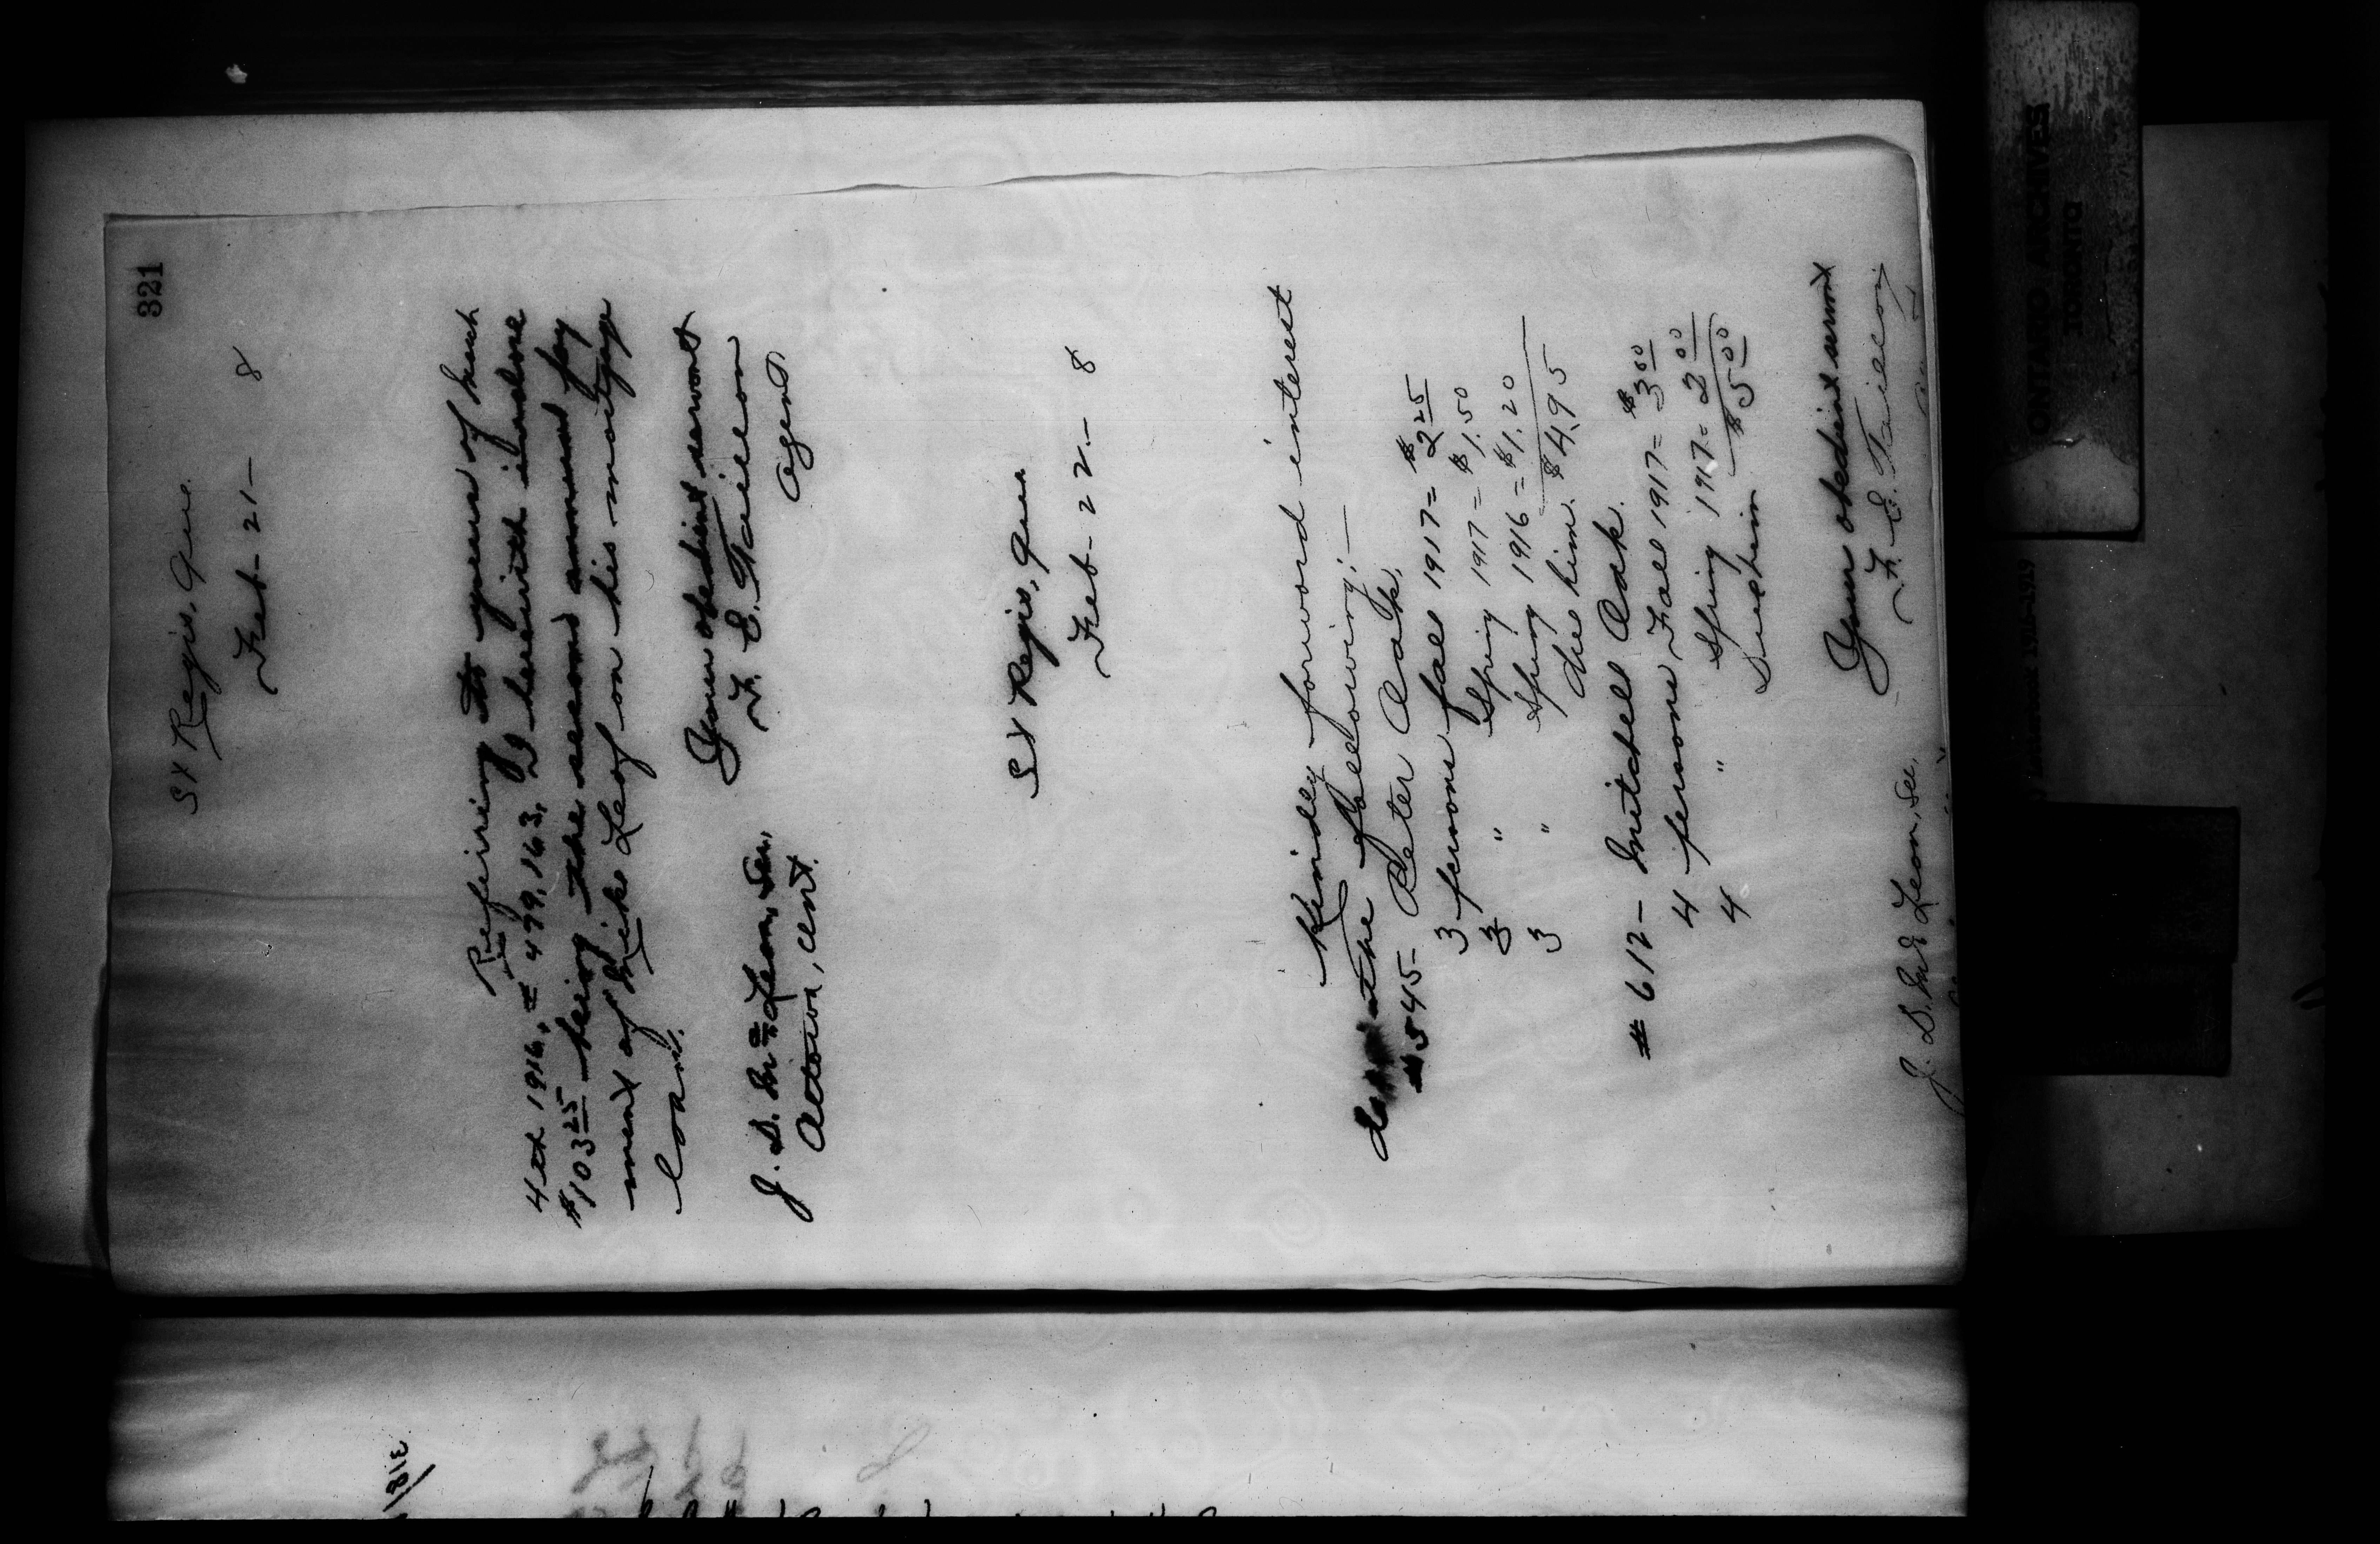 321
St Regis, Que.
Feb- 21- 8
Refering to yours of march
4th 1916, = 479,163, I herewith inclose
$103 25 being the second annual pay
ment of Mike Leaf on his mortgage
loan.
Your obedient servant
F. E. Taillon
Agent
J. D. McLean, Sec,
Ottawa, Ont.
St Regis, Que
Feb- 22- 8
Kindly forword interest
the following:—
#545- Peter Oak.
3 persons fall 1917= $2 25
3 " Spring 1917= $1.50
3 " Spring 1916= $1.20
due him. $4.95
#612- Mitchel Oak.
4 persons Fall 1917= $3 00
4 " Spring 1917= 2 00
due him $5 00
Your obedient servant
F. E. Taillon
J. D. McLean, Sec,
318
ONTARIO ARCHIVES
TORONTO